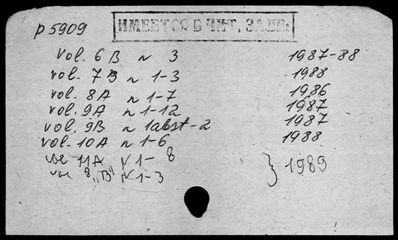 p5909 ИМЕЕТСЯ В ЧИТ. ЗАЛЕ
vol. 6B N 3 1987-88
vol. 7B N 1-3 1988
vol. 8A N 1-7 1986
vol. 9A N 1-12 1987
vol. 9B N 1abst-2 1987
vol. 10A N 1-6 1988
vol 11A N 1- 8 } 1989
vol 8 "B" N 1-3